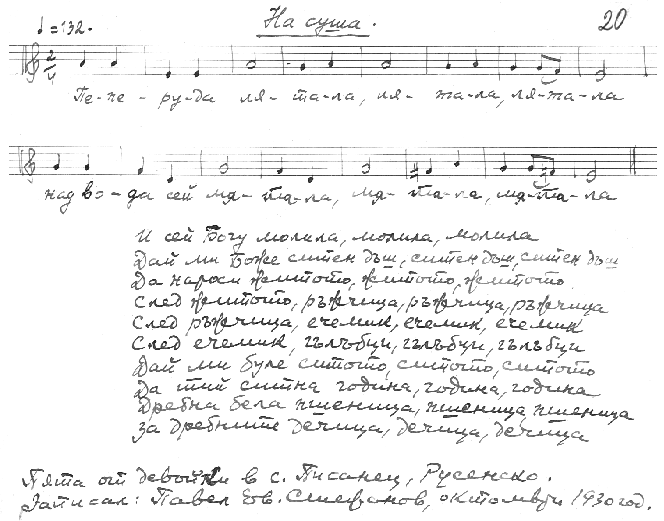 ♩=132. На суша. 20
Пе-пе-ру-да ля-та-ла, ля-тала, ля-тала
над во-да сей мя-та-ла, мя-та-ла, мя-та-ла
И сей Богу молила, молила, молила
Дай ми Боже ситен дъш, ситен дъш, ситен дъш
Да нароси житото, житото, житото
След житото, ръжчица, ръжчица, ръжчица
След ръжчица, ечемик, ечемик, ечемик
След ечемик, гълъбци, гълъбци, гълъбци
Дай ми буле ситото, ситото, ситото
Да тий ситна година, година, година
Дребна бела пшеница, пшеница, пшеница
За дребните дечица, дечица, дечица
Пята от девойки в с. Писанец, Русенско.
Записал: Павел Ев. Стефанов, октомври 1930 год.